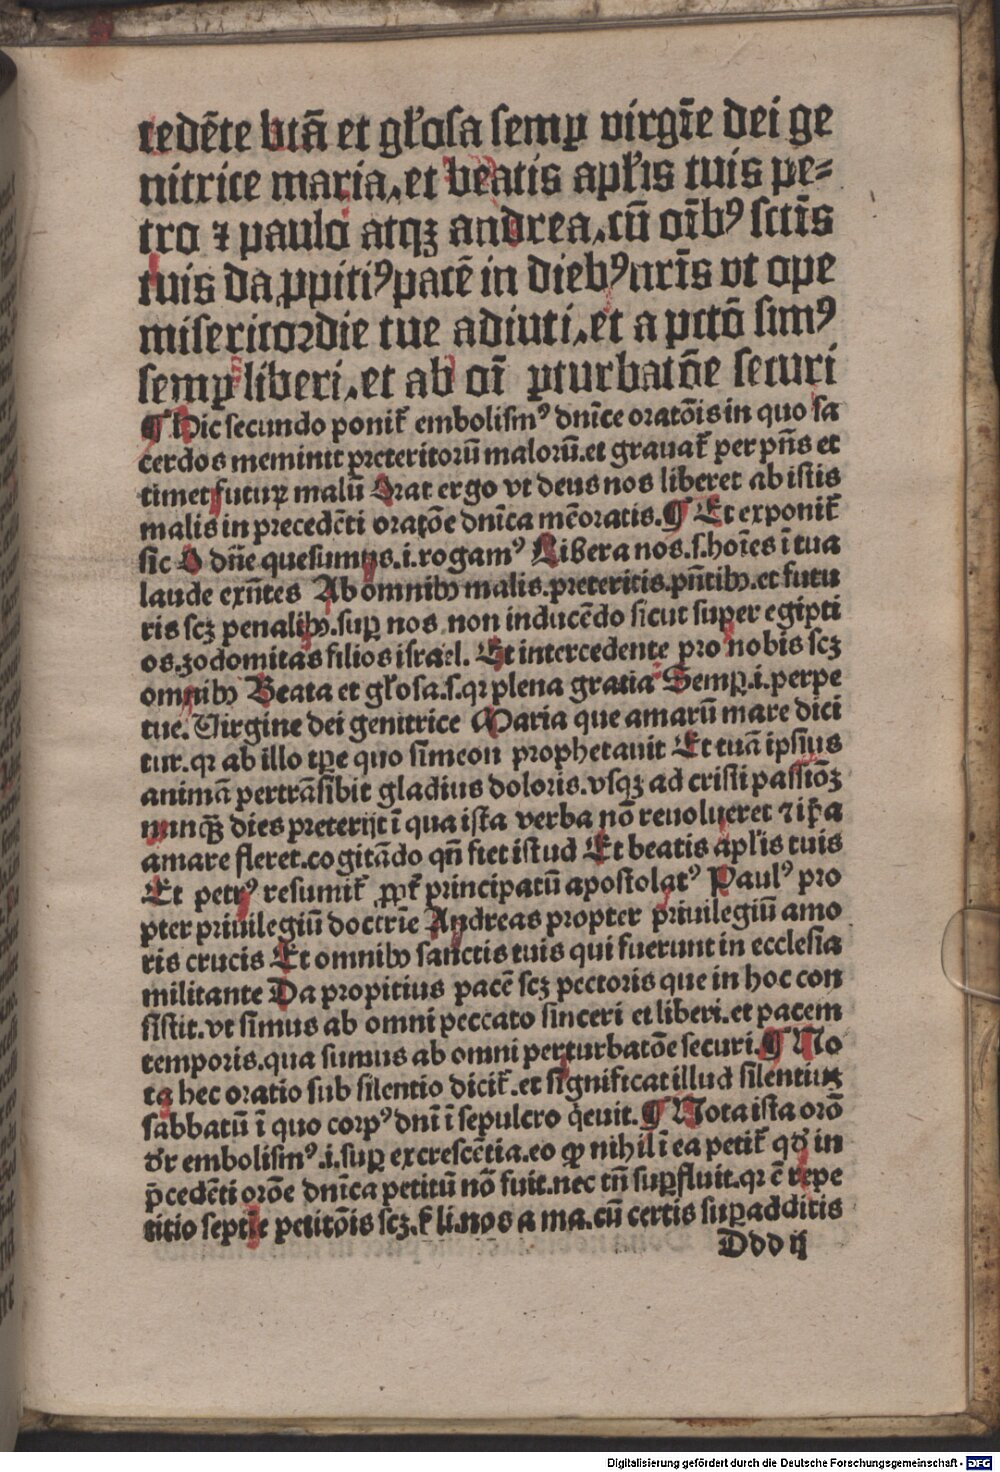 cedēte btā et gło̅sa semꝑ virgīe dei ge
nitrice maria, et beatis apłis tuis pe⸗
tro ⁊ paulo atqꝫ andrea, cū oībꝰ sctīs
tuis da ꝓpitiꝰ pacē in diebꝰ nrīs vt ope
misericordie tue adiuti, et a pctō simꝰ
semꝑ liberi, et ab oī ꝑturbatōe securi
¶ Hic secundo ponit᷑ embolismꝰ dnīce oratōis in quo sa
cerdos meminit preteritorū malorū. et grauat᷑ per pn̄s et
timet futuꝝ malū Orat ergo vt deus nos liberet ab istis
malis in precedēti oratōe dnīca mēoratis. ¶ Et exponit᷑
sic O dn̄e quesumus .i. rogamꝰ Libera nos .s. hoīes ī tua
laude exn̄tes Ab omnibꝫ malis. preteritis. pn̄tibꝫ. et futu
ris scꝫ penalibꝫ. suꝑ nos non inducēdo sicut super egipti
os. zodomitas filios israel. Et intercedente pro nobis scꝫ
omnibꝫ Beata et głosa .s. qꝛ plena gratia Semꝑ .i. perpe
tue. Virgine dei genitrice Maria que amarū mare dici
tur. qꝛ ab illo tꝑe quo simeon prophetauit Et tuā ipsius
animā pertrāsibit gladius doloris. vsqꝫ ad cristi passiōꝫ
nunqꝫ̄ dies preterijt ī qua ista verba nō reuolueret ⁊ ip̄a
amare fleret. cogitādo qn̄ fiet istud Et beatis aplīs tuis
Et petrꝰ resumit᷑ ꝓpt᷑ principatū apostolatꝰ Paulꝰ pro
pter priuilegiū doctrīe Andreas propter priuilegiū amo
ris crucis Et omnibꝫ sanctis tuis qui fuerunt in ecclesia
militante Da propitius pacē scꝫ pectoris que in hoc con
sistit. vt simus ab omni peccato sinceri et liberi. et pacem
temporis. qua sumus ab omni perturbatōe securi. ¶ No
ta hec oratio sub silentio dicit᷑. et significat illud silentiuꝫ
sabbatū ī quo corpꝰ dnī ī sepulcro q̇euit. ¶ Nota ista orō
dr̄ embolismꝰ .i. suꝑ excrescētia. eo ꝙ nihil ī ea petit᷑ qd̄ in
p̄cedēti orōe dnīca petitū nō fuit. nec tn̄ suꝑfluit. qꝛ ē repe
titio septīe petitōis scꝫ. s᷑ li. nos a ma. cū certis suꝑadditis
Ddd ij
Digitalisierung gefördert durch die Deutsche Forschungsgemeinschaft - DFG